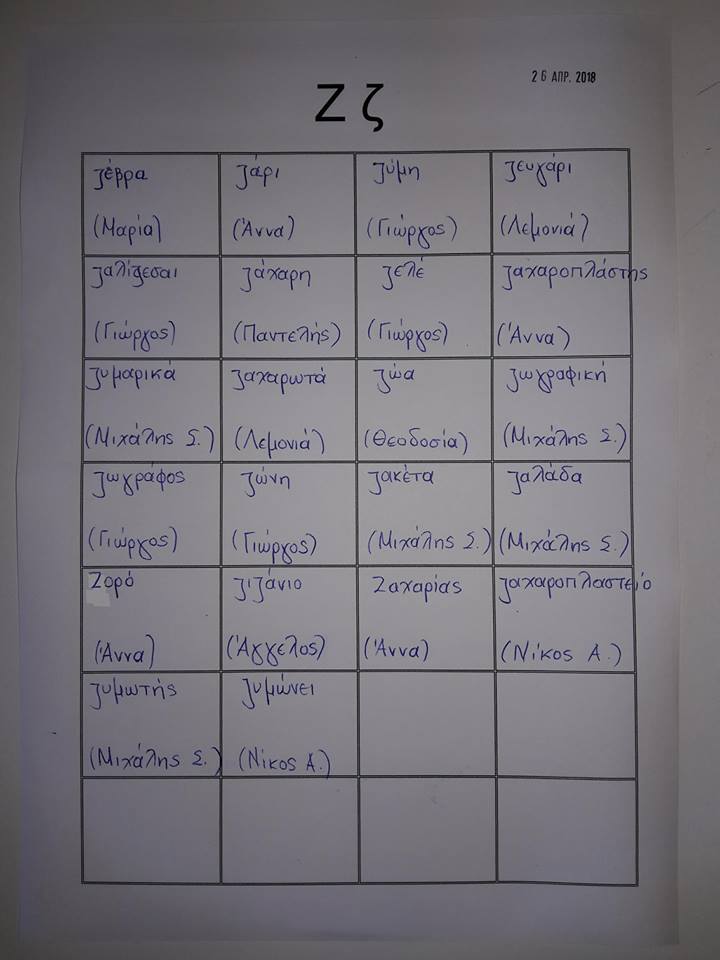 26 ΑΠΡ. 2018
Ζ ζ
ζέβρα ζάρι ζύμη ζευγάρι
(Μαρία) (Άννα) (Γιώργος) (Λεμονιά)
ζαλίζεσαι ζάχαρη ζελέ ζαχαροπλάστης
(Γιώργος) (Παντελής) (Γιώργος) (Άννα)
ζυμαρικά ζαχαρωτά ζώα ζωγραφική
(Μιχάλης Σ.) (Λεμονιά) (Θεοδοσία) (Μιχάλης Σ.)
ζωγράφος ζώνη ζακέτα ζαλάδα
(Γιώργος) (Γιώργος) (Μιχάλης Σ.) (Μιχάλης Σ.)
Ζορό ζιζάνιο Ζαχαρίας ζαχαροπλαστείο
(Άννα) (Άγγελος) (Άννα) (Νίκος Α.)
ζυμωτής ζυμώνει
(Μιχάλης Σ.) (Νίκος Α.)